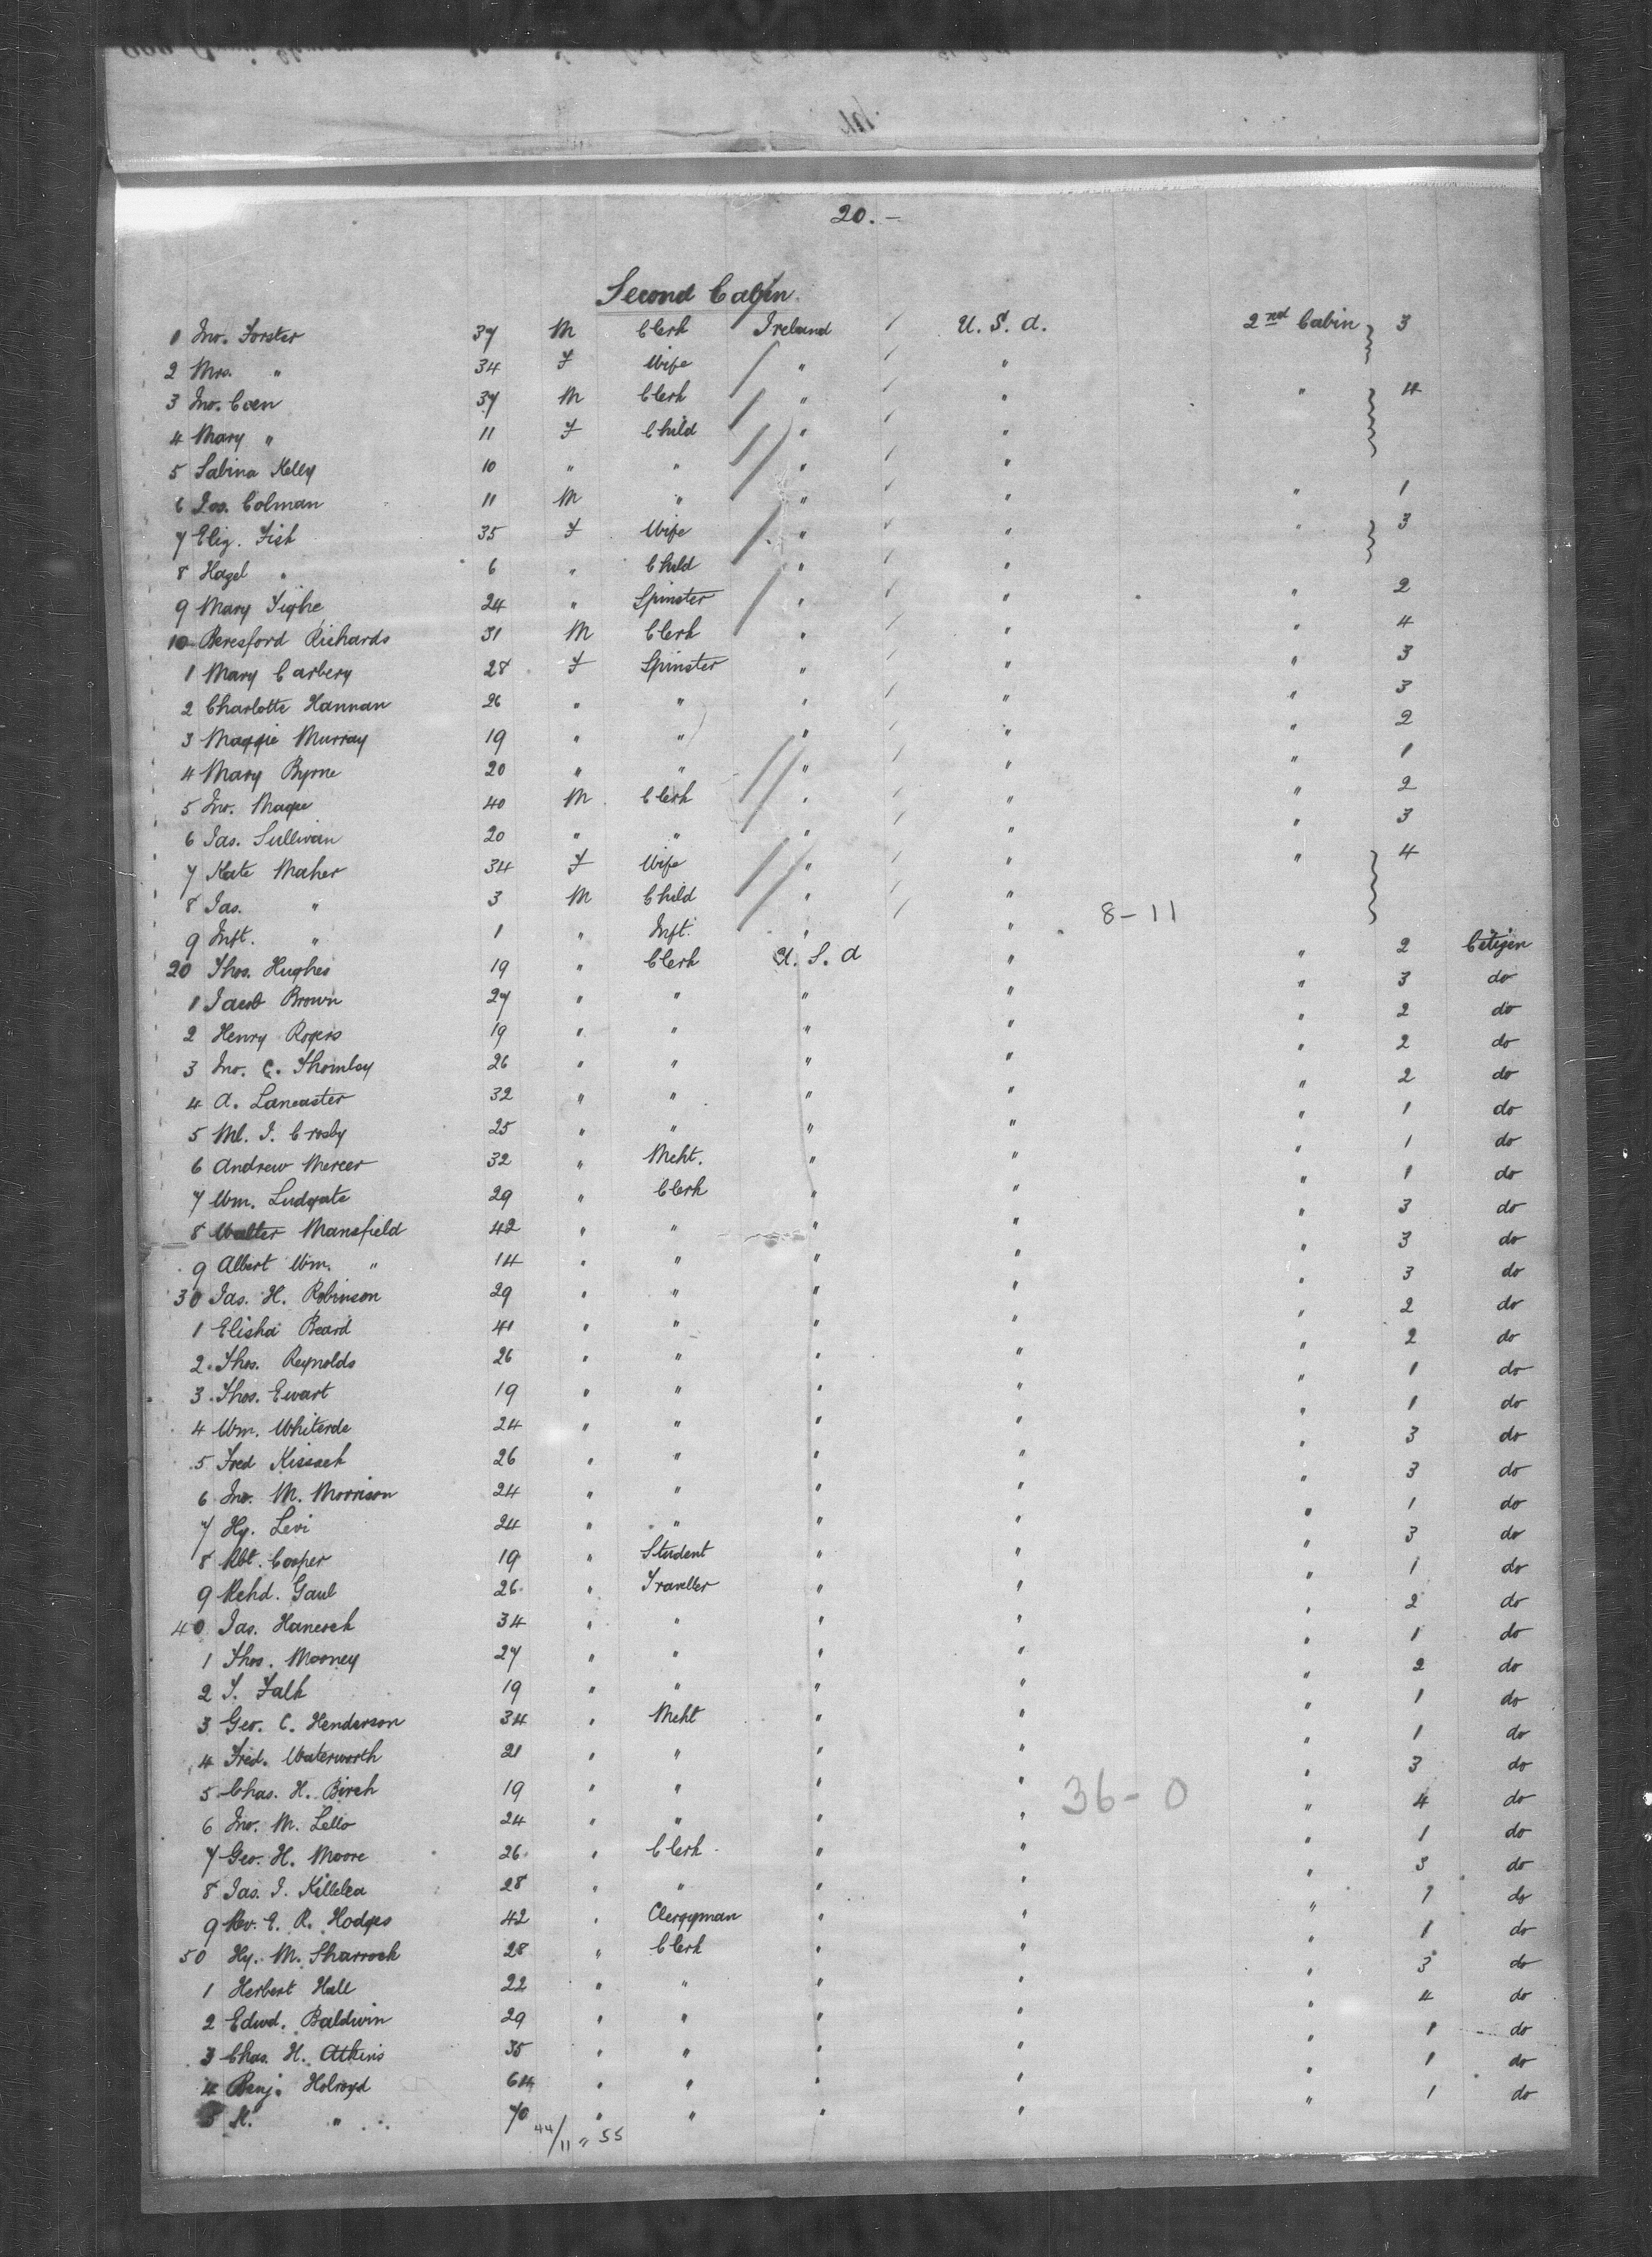 20. –
Second Cabin.
1 Jno. Forster 37 M Clerk Ireland / U. S. A. 2nd Cabin 3
2 Mrs. " 34 F Wife " / "
3 Jno. Coen 37 M Clerk " / " " 4
4 Mary " 11 F Child " / "
5 Sabina Kelly 10 " " " / "
6 Jos. Colman 11 M " " / " " 1
7 Eliz. Fish 35 F Wife " / " " 3
8 Hazel " 6 " Child " / "
9 Mary Tighe 24 " Spinster " / " " 2
10 Beresford Richards 31 M Clerk " / " " 4
1 Mary Carbery 28 F Spinster " / " " 3
2 Charlotte Hannan 26 " " " / " " 3
3 Maggie Murray 19 " " " / " " 2
4 Mary Byrne 20 " " " / " " 1
5 Jno. Magee 40 M Clerk " / " " 2
6 Jas. Sullivan 20 " " " / " " 3
7 Kate Maher 34 F Wife " / " " 4
8 Jas. " 3 M Child " / "
8-11
9 Inft. " 1 " Inft. " "
20 Thos. Hughes 19 " Clerk U. S. A " " 2 Citizen
1 Jacob Brown 27 " " " " " 3 do
2 Henry Rogers 19 " " " " " 2 do
3 Jno. C. Thomley 26 " " " " " 2 do
4 A. Lancaster 32 " " " " " 2 do
5 Ml. J. Crosby 25 " " " " " 1 do
6 Andrew Mercer 32 " Mcht. " " " 1 do
7 Wm. Ludgate 29 " Clerk " " " 1 do
8 Walter Mansfield 42 " " " " " 3 do
9 Albert Wm. " 14 " " " " " 3 do
30 Jas. H. Robinson 29 " " " " " 3 do
1 Elisha Beard 41 " " " " " 2 do
2 Thos. Reynolds 26 " " " " " 2 do
3 Thos. Ewart 19 " " " " " 1 do
4 Wm. Whiterde 24 " " " " " 1 do
5 Fred Kissack 26 " " " " " 3 do
6 Jno. M. Morrison 24 " " " " " 3 do
7 Hy. Levi 24 " " " " " 1 do
8 Rbt. Cooper 19 " Student " " " 3 do
9 Rchd. Gaul 26 " Traveller " " " 1 do
40 Jas. 34 " " " " " 2 do
1 Thos. Mooney 27 " " " " " 1 do
2 T. Falk 19 " " " " " 2 do
3 Geo. C. Henderson 34 " Mcht " " " 1 do
4 Fred. Waterworth 21 " " " " " 1 do
5 Chas. H. Birch 19 " " " " " 3 do
36-0
6 Jno. M. Lello 24 " " " " " 4 do
7 Geo. H. Moore 26 " Clerk " " " 1 do
8 Jas. J. Killelea 28 " " " " " 3 do
9 Rev. E. R. Hodges 42 " Clergyman " " " 1 do
50 Hy. M. Sharrock 28 " Clerk " " " 1 do
1 Herbert Hall 22 " " " " " 3 do
2 Edwd. Baldwin 29 " " " " " 4 do
3 Chas. H. Atkins 35 " " " " " 1 do
4 Benj. Holroyd 64 " " " " " 1 do
5 " 70 " " " " " 1 do
44/11 " 55